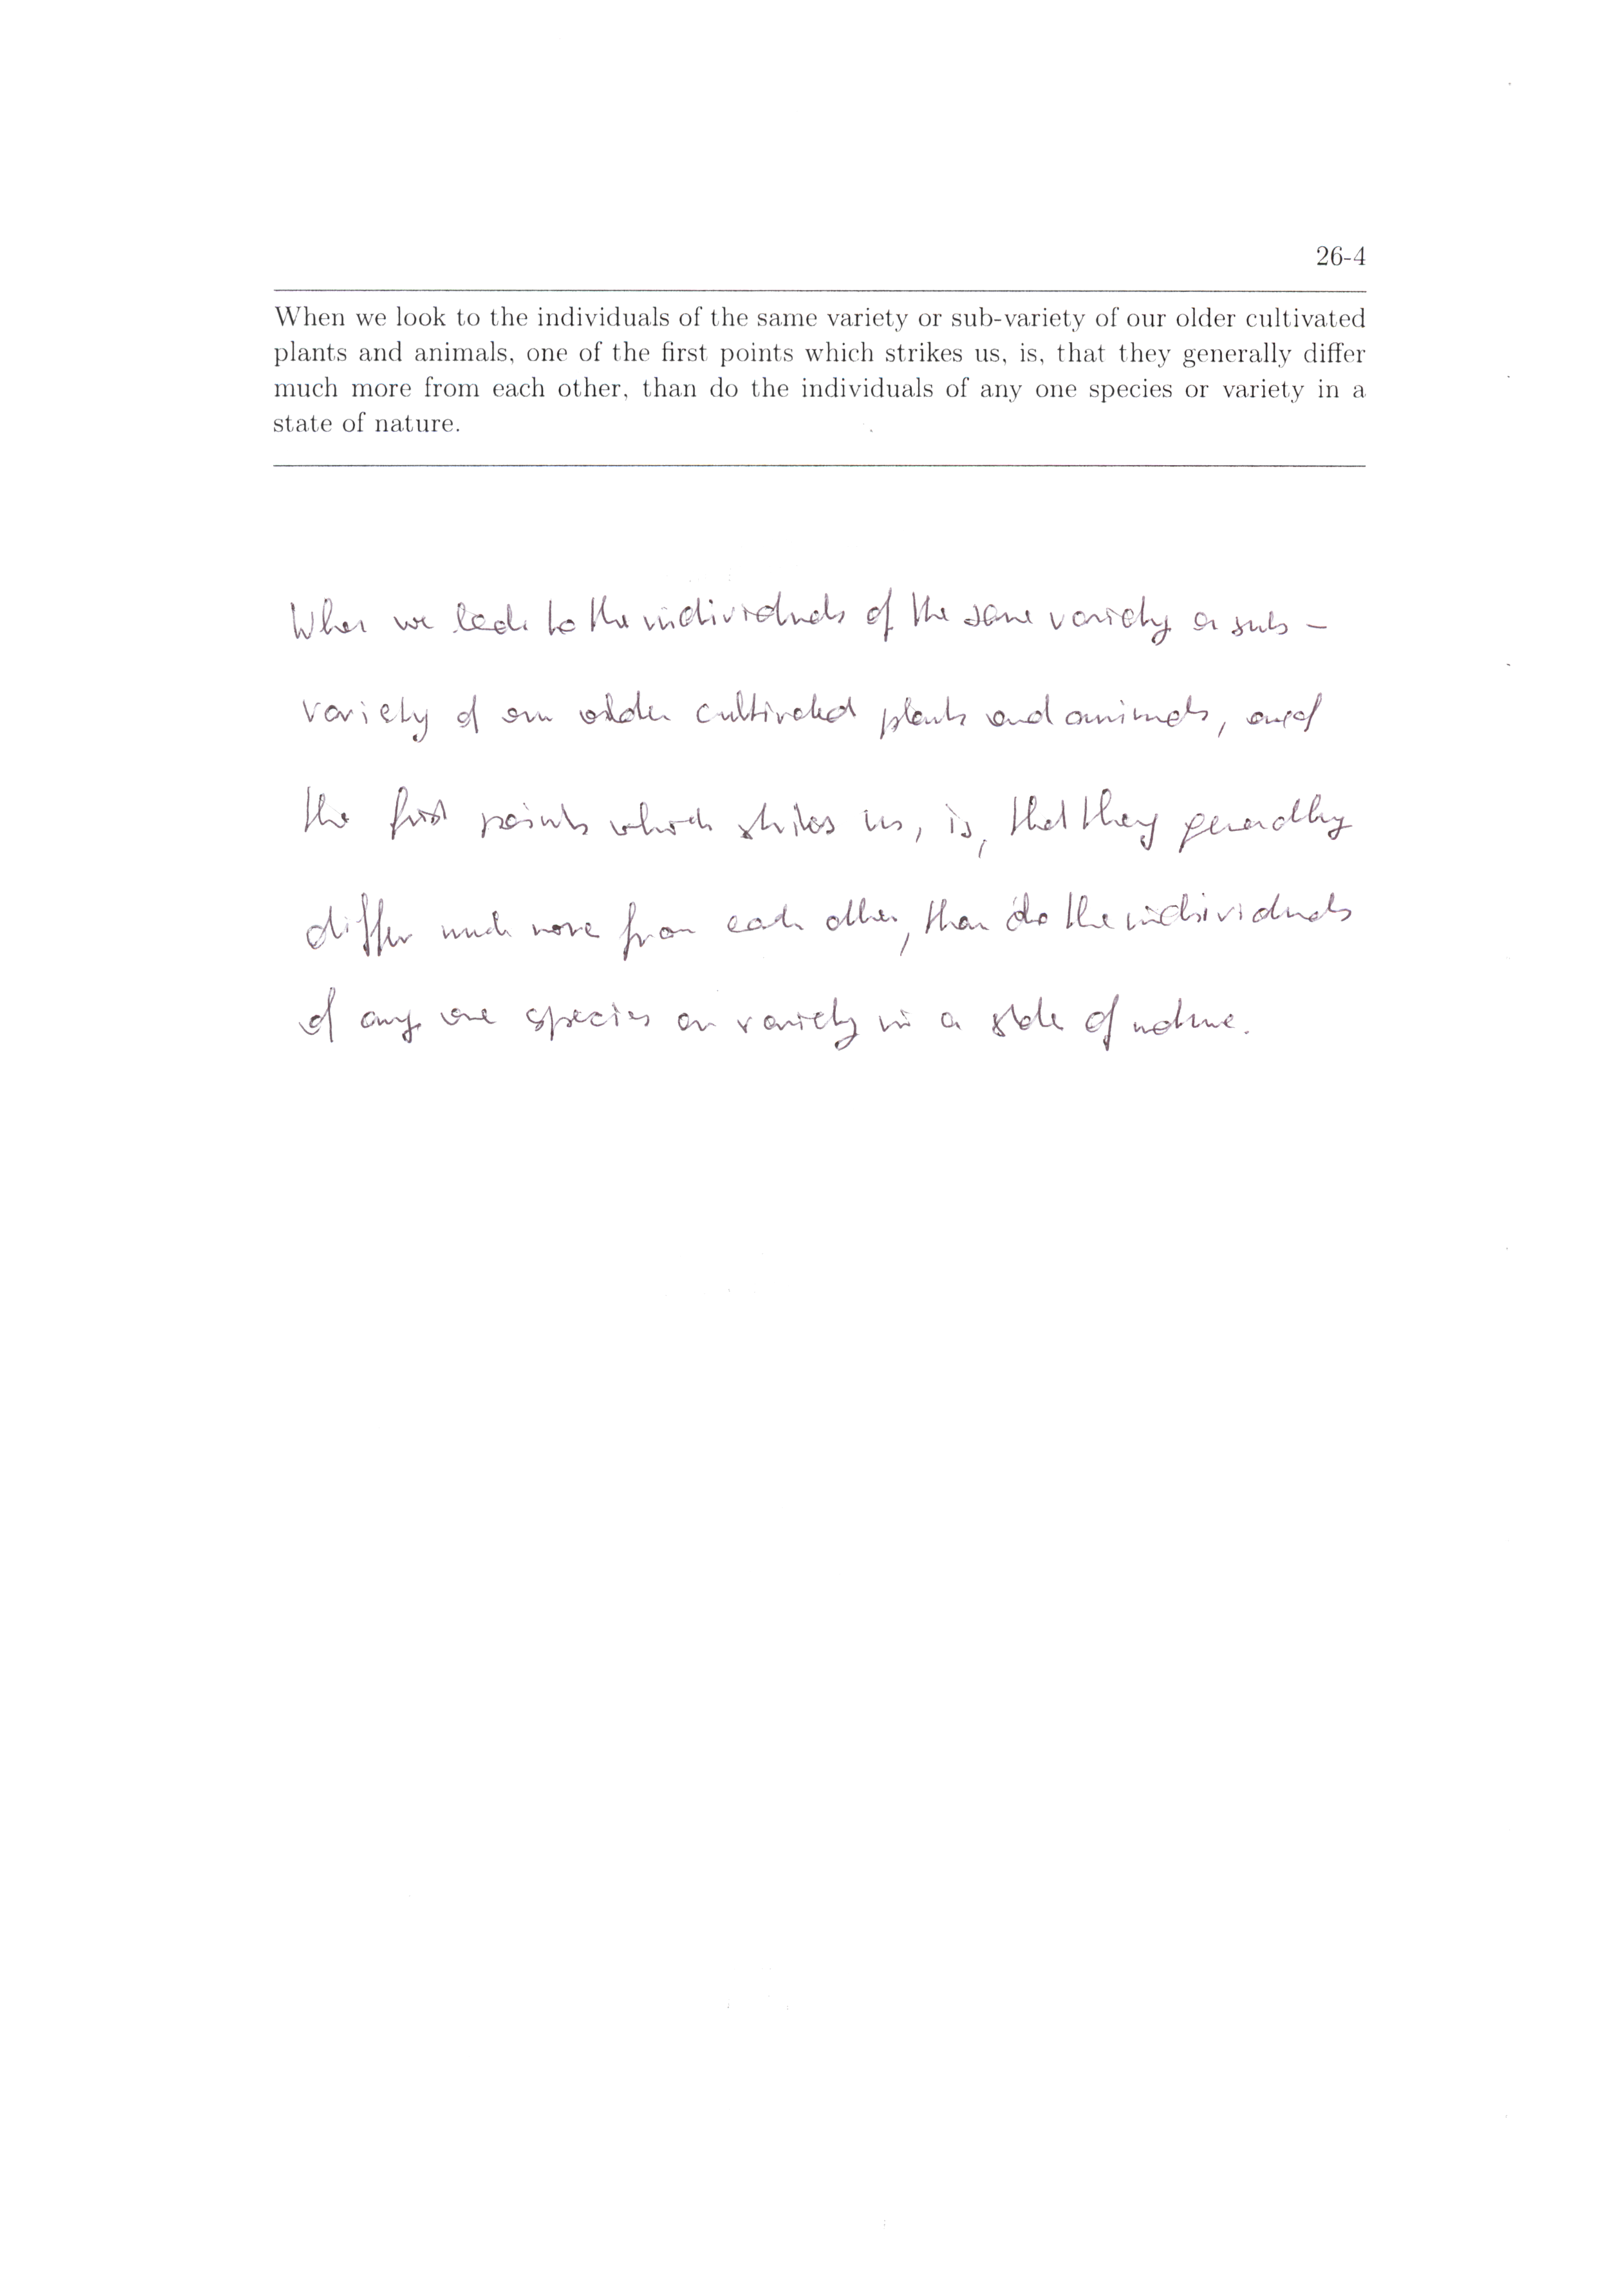 26-4
When we look to the individuals of the same variety or sub-variety of our older cultivated
plants and animals, one of the first points which strikes us, is, that they generally differ
much more from each other, than do the individuals of any one species or variety in a
state of nature.
When we look to the individuals of the same variety or sub-
variety of our older cultivated plants and animals, one of
the first points which strikes us, is, that they generally
differ much more from each other, than do the individuals
of any one species or variety in a state of nature.